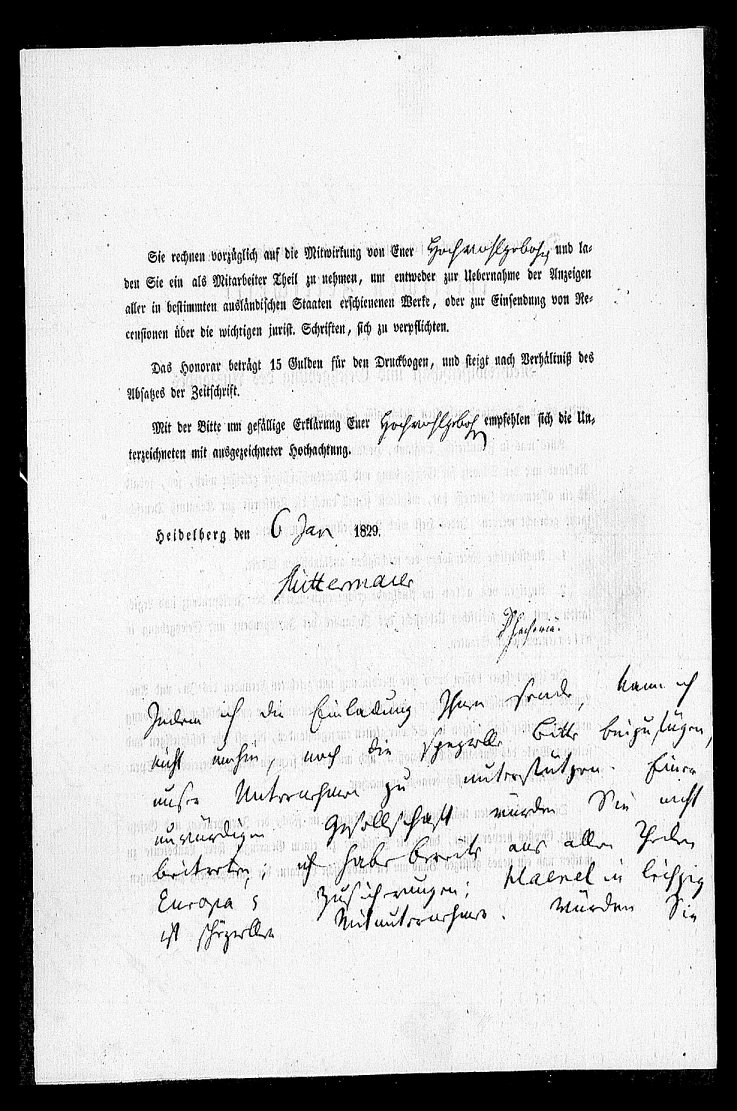 Sie rechnen vorzüglich auf die Mitwirkung von Euer Hochwohlgeboh und la-
den Sie ein als Mitarbeiter Theil zu nehmen, um entweder zur Uebernahme der Anzeigen
aller in bestimmten ausländischen Staaten erschienenen Werke, oder zur Einsendung von Re-
censionen über die wichtigen jurist. Schriften, sich zu verpflichten.
Das Honorar beträgt 15 Gulden für den Druckbogen, und steigt nach Verhältniß des
Absatzes der Zeitschrift.
Mit der Bitte um gefällige Erklärung Euer Hochwohlgeboh empfehlen sich die Un-
terzeichneten mit ausgezeichneter Hochachtung.
Heidelberg den 6 Jan 1829.
Mittermaier
Zachariä.
Indem ich die Einladung Ihnen sende, kann ich
nicht umhin, noch die spezielle Bitte beizufügen,
unser Unternehmen zu unterstützen. Einer
unwürdigen Gesellschaft würden Sie nicht
beitreten, ich habe bereits aus allen Theilen
Europa's Zusicherungen; Haenel in Leipzig
ist spezieller Mitunternehmer. Würden Sie